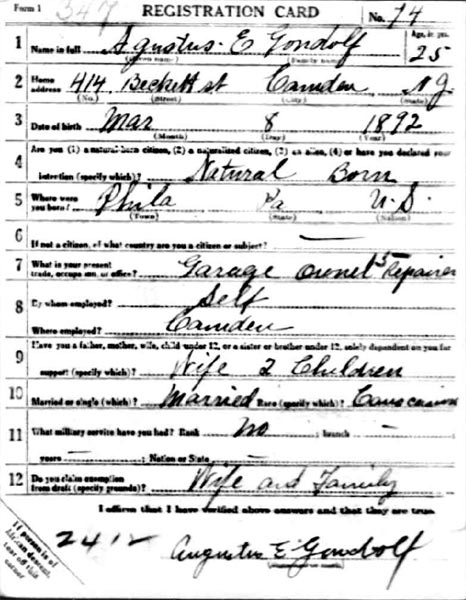 Form 1 347 REGISTRATION CARD No. 74
1 Name in full Agustus. E Gondolf Age, in yrs. 25
(Given name) (Family name)
2 Home address 414 Beckett st Camden NJ
(No.) (Street) (City) (State)
3 Date of birth Mar 8 1892
(Month) (Day) (Year)
4 Are you (1) a natural-born citizen, (2) a naturalized citizen, (3) an alien, (4) or have you declared your
intention (specify which)? Natural Born
5 Where were you born? Phila Pa U.S.
(Town) (State) (Nation)
6 If not a citizen, of what country are you a citizen or subject? —
7 What is your present trade, occupation, or office? Garage Repairer
8 By whom employed? Self
Where employed? Camden
9 Have you a father, mother, wife, child under 12, or a sister or brother under 12, solely dependent on you for
support (specify which)? Wife 2 Children
10 Married or single (which)? Married Race (specify which)?
11 What military service have you had? Rank no ; branch —
years — ; Nation or State —
12 Do you claim exemption from draft (specify grounds)? Wife and Family
I affirm that I have verified above answers and that they are true.
If person is of African descent, tear off this corner
Augustus E. Gondolf